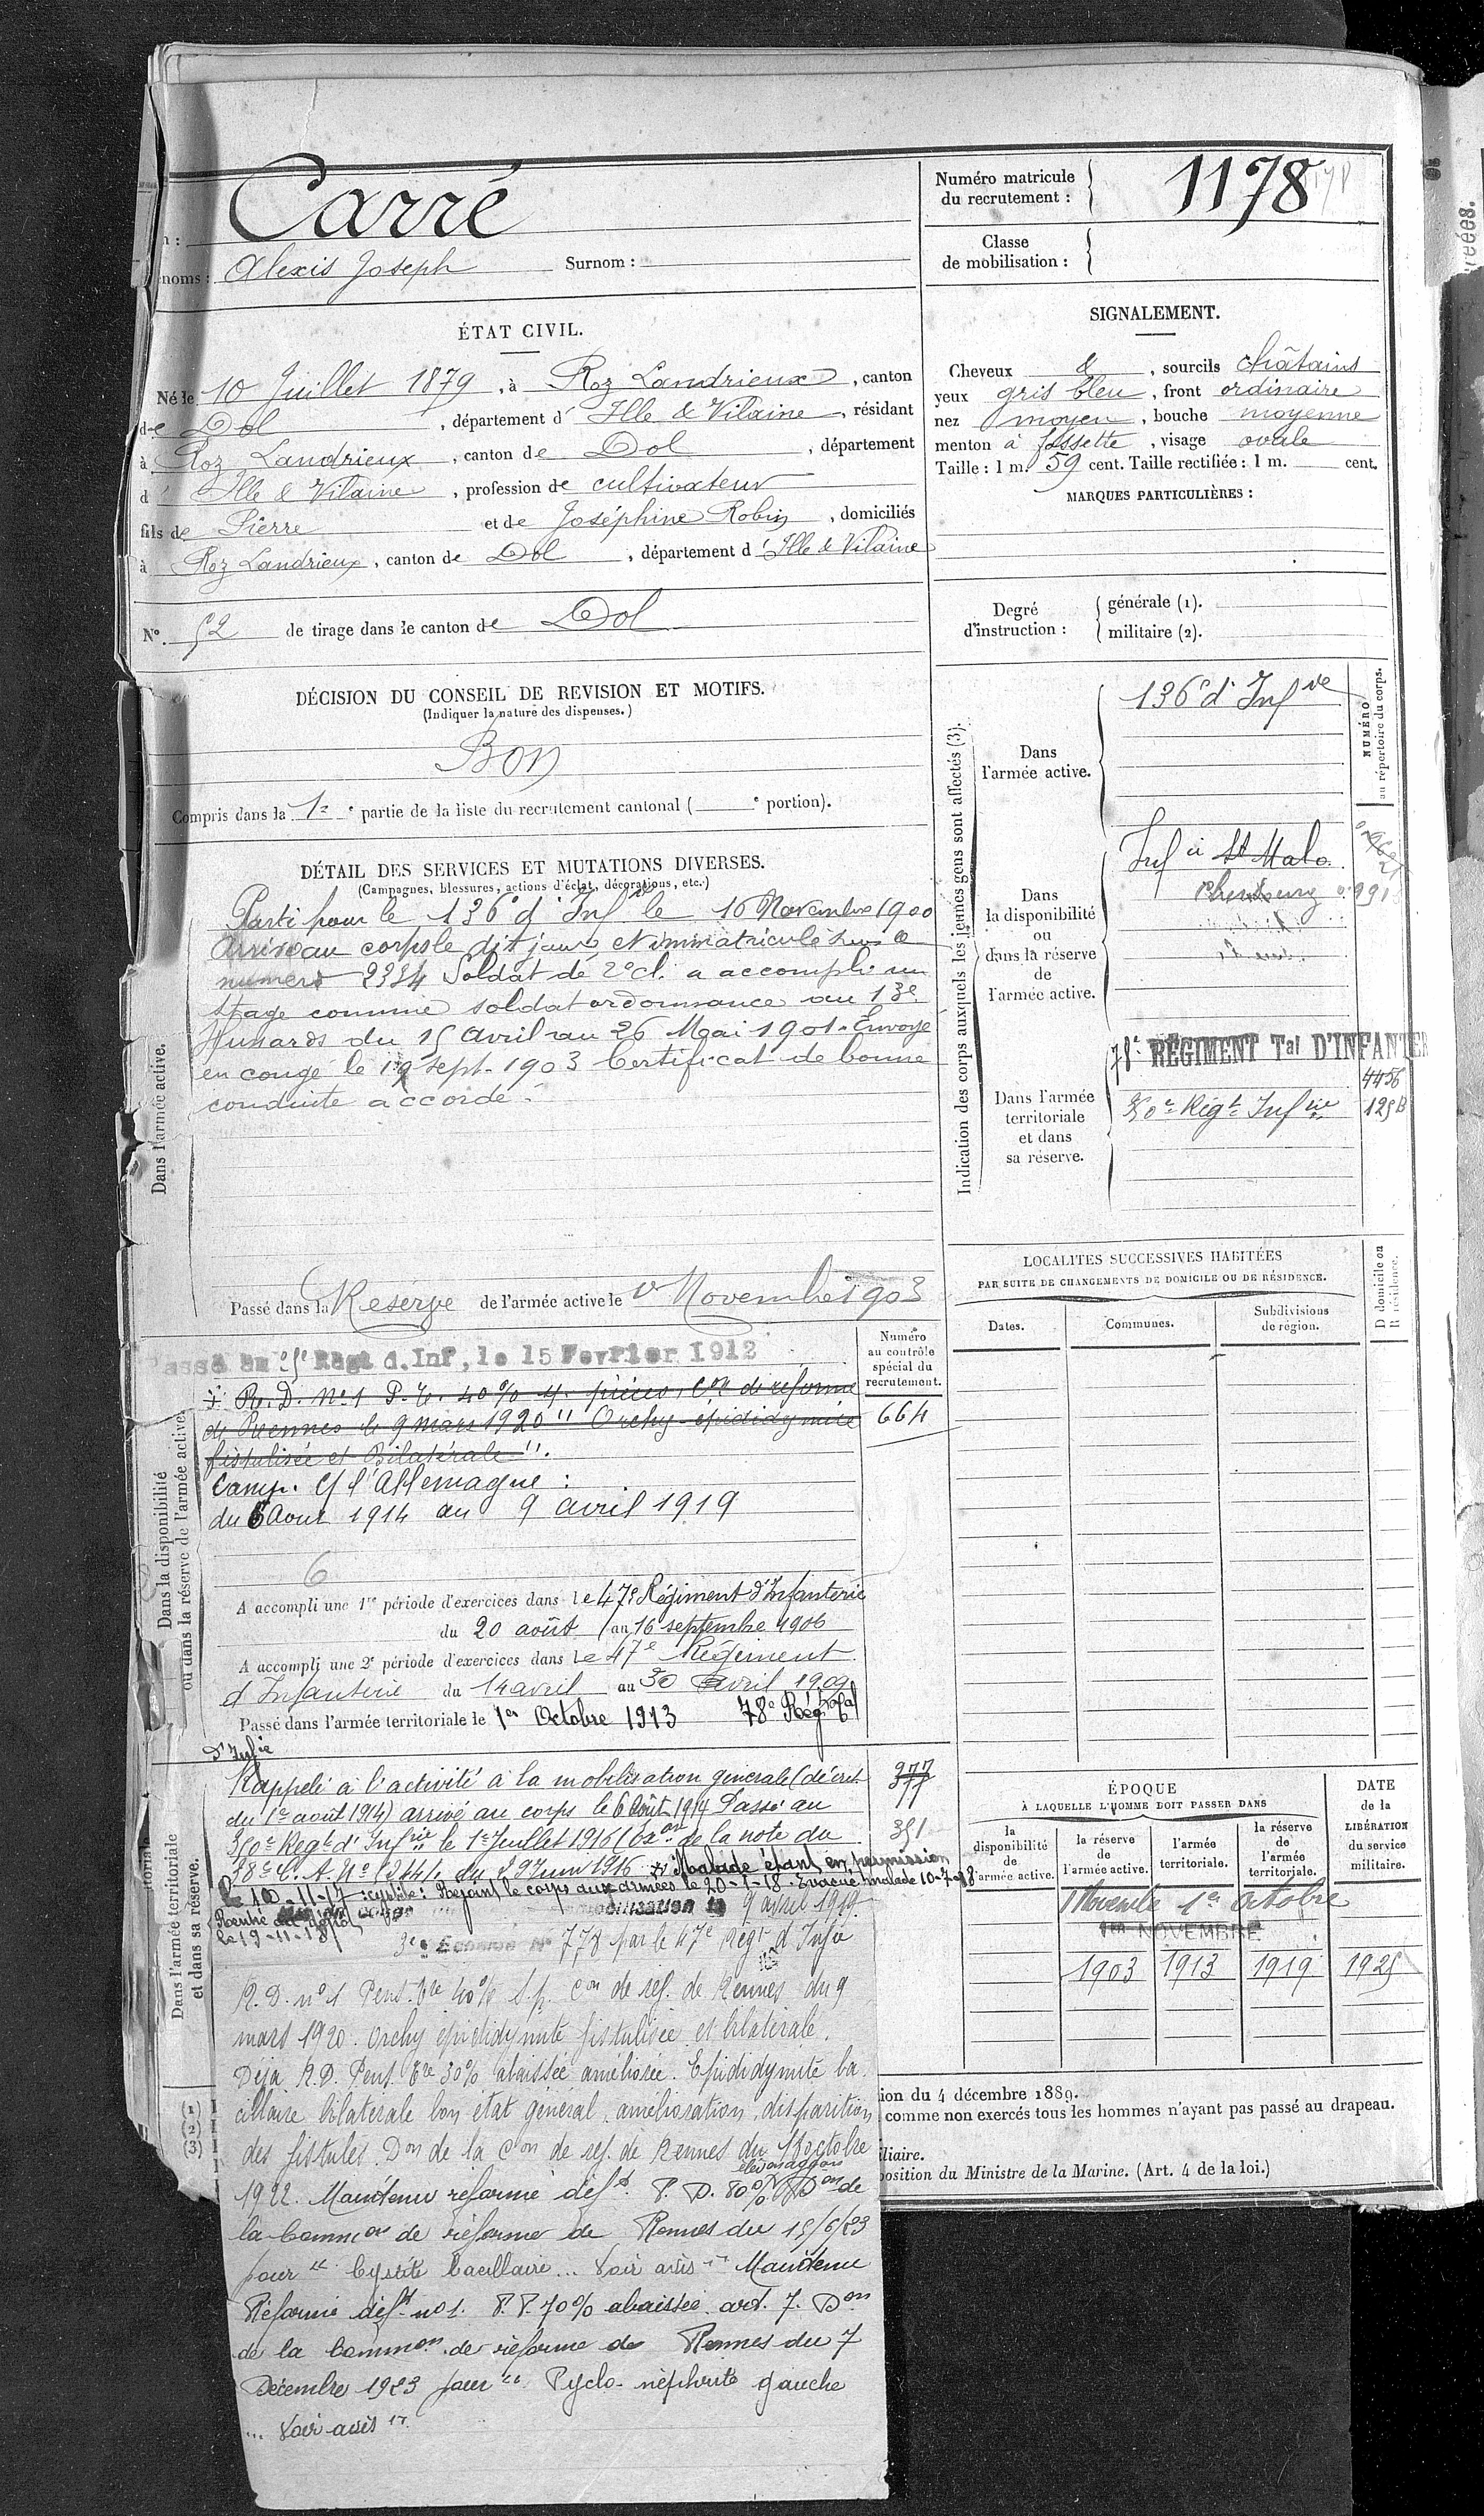 Carré
Numéro matricule
du recrutement :
1178
noms : Alexis Joseph Surnom :
Classe
de mobilisation :
ÉTAT CIVIL.
Né le 10 Juillet 1879, à Roz Landrieux, canton
de Dol, département d' Ille & Vilaine, résidant
à Roz Landrieux, canton de Dol, département
d' Ille & Vilaine, profession de cultivateur
fils de Pierre et de Joséphine Robin, domiciliés
à Roz Landrieux, canton de Dol, département d' Ille & Vilaine
N° 52 de tirage dans le canton de Dol
SIGNALEMENT.
Cheveux &, sourcils châtains
yeux gris bleu, front ordinaire
nez moyen, bouche moyenne
menton à fossette, visage ovale
Taille : 1 m. 59 cent. Taille rectifiée : 1 m. cent.
MARQUES PARTICULIÈRES :
Degré
d'instruction :
générale (1).
militaire (2).
DÉCISION DU CONSEIL DE REVISION ET MOTIFS.
(Indiquer la nature des dispenses.)
Bon
Compris dans la 1re partie de la liste du recrutement cantonal ( e portion).
DÉTAIL DES SERVICES ET MUTATIONS DIVERSES.
(Campagnes, blessures, actions d'éclat, décorations, etc.)
Dans l'armée active.
Parti pour le 136e d'Inf le 16 Novembre 1900
Arrivé au corps le dit jour et immatriculé sous le
numéro 2334 Soldat de 2e cl. a accompli un
stage comme soldat ordonnance au 13e
Hussards du 15 Avril au 26 Mai 1901. Envoyé
en congé le 19 sept. 1903 Certificat de bonne
conduite accordé.
Passé dans la Réserve de l'armée active le 1er Novembre 1903
Indication des corps auxquels les jeunes gens sont affectés (3).
NUMÉRO
au répertoire du corps.
Dans
l'armée active.
136e d' Infve
Dans
la disponibilité
ou
dans la réserve
de
l'armée active.
Inf à St Malo
Cherbourg
Dans l'armée
territoriale
et dans
sa réserve.
78e RÉGIMENT Tal D'INFANTER
4456
Régt Infie
LOCALITÉS SUCCESSIVES HABITÉES
PAR SUITE DE CHANGEMENTS DE DOMICILE OU DE RÉSIDENCE.
D domicile ou
R résidence.
Dates.
Communes.
Subdivisions
de région.
Dans la disponibilité
ou dans la réserve de l'armée active.
Numéro
au contrôle
spécial du
recrutement.
664
Passé au Régt d.Inf, le 15 Fevrier 1912
R. D. No 1 P. T. 40 % Con de réforme
de Rennes le 9 mars 1920 " Orchy-épididymite
fistulisée et Bilatérale ".
Camp. C/ l'Allemagne :
du 6 Aout 1914 au 9 avril 1919
6
A accompli une 1re période d'exercices dans le 47e Régiment d'Infanterie
du 20 août au 16 septembre 1906
A accompli une 2e période d'exercices dans le 47e Régiment
d'Infanterie du 14 avril au 30 avril 1909
Passé dans l'armée territoriale le 1er Octobre 1913 78e Régt Tal
d'Infie
Dans l'armée territoriale
et dans sa réserve.
Rappelé à l'activité à la mobilisation générale (décret
du 1er août 1914) arrivé au corps le 6 Août 1914 Passé au
Régt d' Infrie le 1er Juillet 1916 (Exon de la note du
Juin 1916 Malade étant en permission
le 10-11-17 : cystite : Rejoint le corps aux armées le 20-1-18. Evacué malade 10-7-18
Rentré au dépôt
le 19-11-18
9 avril 1919.
3e Echelon No 778 par le 47e Régt d'Infie
R.D. n°1 Pent. Tre 40% S.p. Con de réf. de Rennes du 9
mars 1920. Orchy épididymite fistulisée et bilatérale.
Déja R.D. Pent. Tre 30% abaissée améliorée. Epididymite ba
cillaire bilatérale bon état général. amélioration, disparition
des fistules. Don de la Con de réf. de Rennes du octobre
1922. Maintenu réformé déft. P. D. 80% Don de
la Common de réforme de Rennes du 15/6/23
pour " Cystite bacillaire... Voir avis " Maintenu
Réformé déft n°1. P.P. 70% abaissée. art. 7. Don
de la Common de réforme de Rennes du 7
Décembre 1923 pour " Pyélo-néphrite gauche
... Voir avis ".
ÉPOQUE
À LAQUELLE L'HOMME DOIT PASSER DANS
DATE
de la
LIBÉRATION
du service
militaire.
la
disponibilité
de
l'armée active.
la réserve
de
l'armée active.
l'armée
territoriale.
la réserve
de
l'armée
territoriale.
1er octobre
1er NOVEMBRE
1903 1913 1919 1925
ion du 4 décembre 1889.
comme non exercés tous les hommes n'ayant pas passé au drapeau.
iliaire.
position du Ministre de la Marine. (Art. 4 de la loi.)
(1)
(2)
(3)